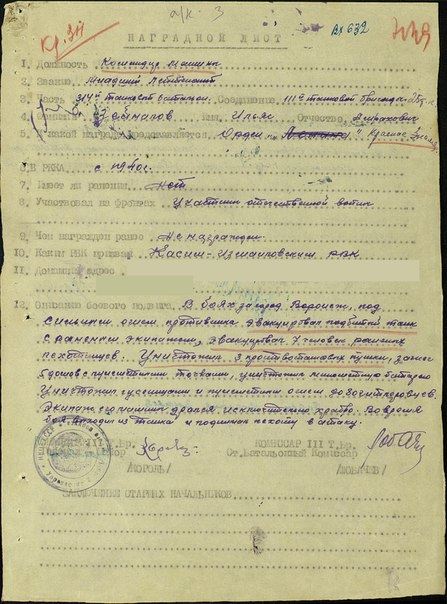 Вх 632
НАГРАДНОЙ ЛИСТ
1. Должность Командир машины
2. Звание Младший Лейтенант
3. Часть 314 танковый батальон. Соединение 111 танковой бригады
4. Фамилия Зайналов имя Ильяс Отчество
5. К какой награде представляется Орден "Красное Знамя"
6. В РККА с 1940г.
7. Имеет ли ранения нет
8. Участвовал на фронтах Участник отечественной войны
9. Чем награжден ранее Не награжден
10. Каким РВК призван Касум-Измаиловским РВК
11. Домашний адрес
12. Описание боевого подвига В боях за город Воронеж, под
сильным огнем противника эвакуировал подбитый танк
с раненым экипажем, эвакуировал 7 человек раненых
пехотинцев. Уничтожил 3 противотанковых пушки,
уничтожил минометную батарею
Уничтожил гусеницами и пулеметным огнем до
Экипаж сражался исключительно храбро. Во время
боя выходил из танка и поднимал пехоту в атаку.
Т.Бр. КОМИССАР 111 Т.Бр.
Ст.Батальонный Комиссар
/КОРОЛЬ/ /ЛЮБАЧЕВ/
ЗАКЛЮЧЕНИЕ СТАРШИХ НАЧАЛЬНИКОВ